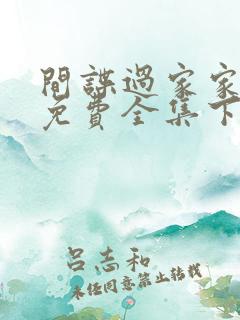 間諜過家家
免費全集下
呂志和
未經同意禁止轉載